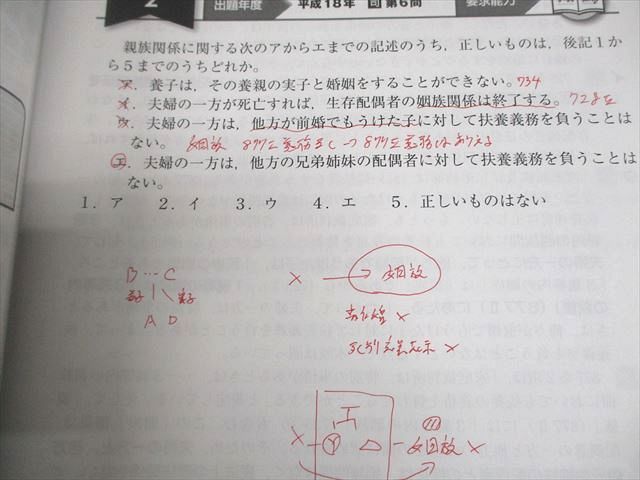 2 出題年度 平成18年 司 第6問 要求能力
親族関係に関する次のアからエまでの記述のうち，正しいものは，後記1か
ら5までのうちどれか。
ア．養子は，その養親の実子と婚姻をすることができない。734
イ．夫婦の一方が死亡すれば，生存配偶者の姻族関係は終了する。728Ⅱ
ウ．夫婦の一方は，他方が前婚でもうけた子に対して扶養義務を負うことは
ない。 877Ⅰ義務なし→877Ⅱ義務はありえる
エ．夫婦の一方は，他方の兄弟姉妹の配偶者に対して扶養義務を負うことは
ない。
1．ア 2．イ 3．ウ 4．エ 5．正しいものはない
B…C
養子 実子
A D
X → 姻族
離婚 X
死別 意思表示 X
X Y △ 姻族 X